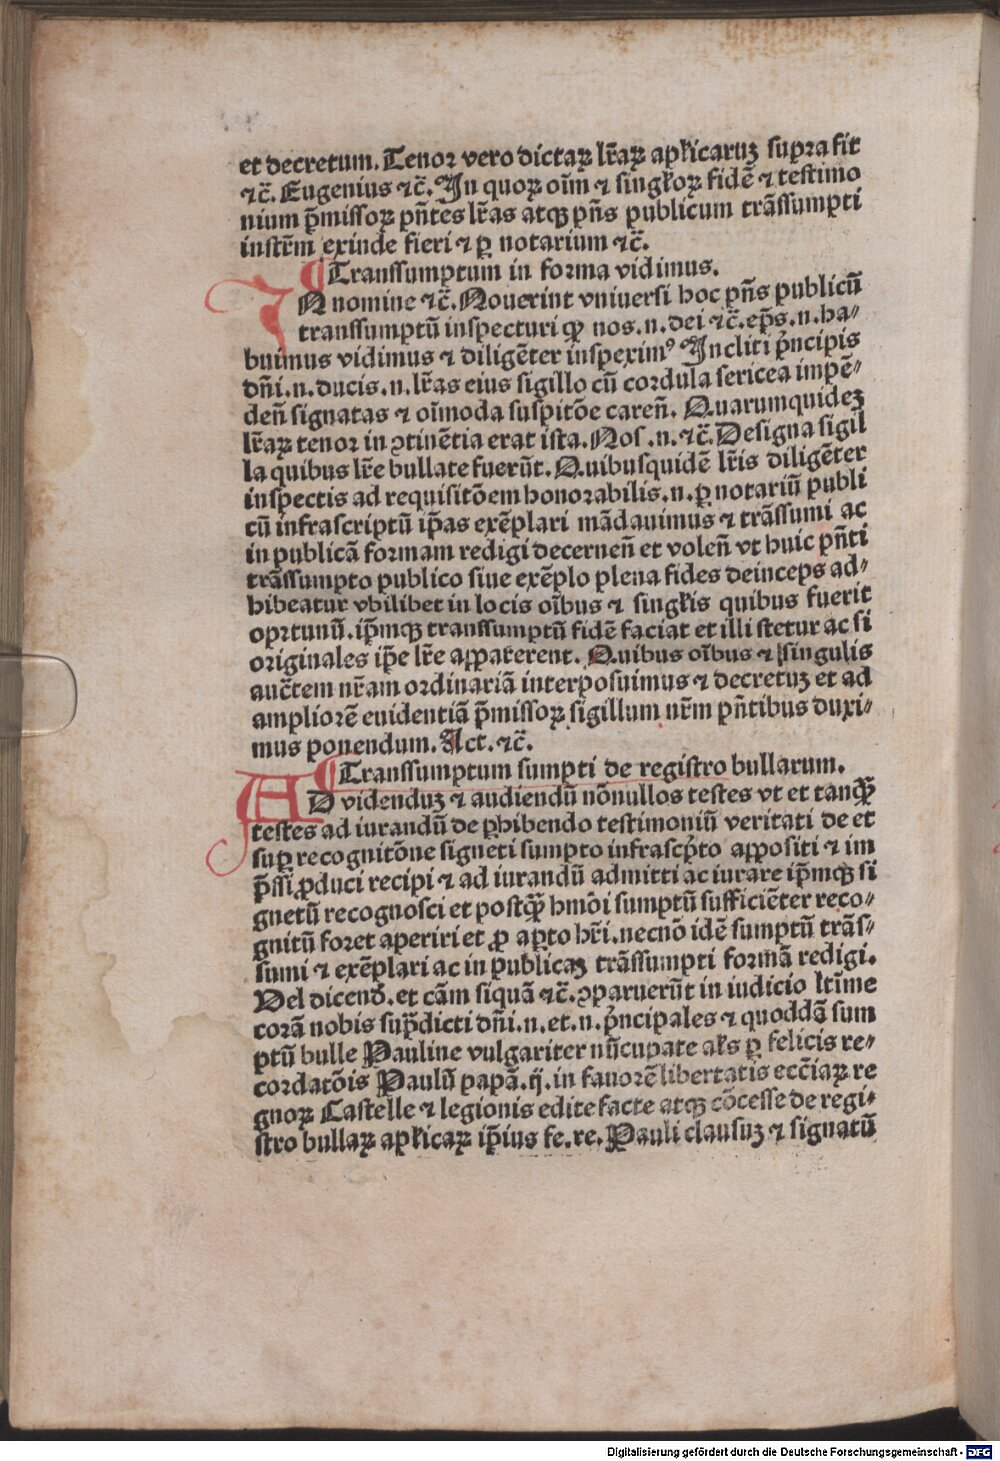 et decretum. Tenor vero dictaꝝ lr̃aꝝ apl̃icaruꝫ supra fit
⁊c̃. Eugenius ⁊c̃. In quoꝝ oĩm ⁊ singl̃oꝝ fidẽ ⁊ testimo
nium p̃missoꝝ pñtes lr̃as atqꝫ pñs publicum trãssumpti
instr̃m exinde fieri ⁊ ꝑ notarium ⁊c̃.
¶ Transsumptum in forma vidimus.
IN nomine ⁊c̃. Nouerint vniuersi hoc pñs publicũ
transsumptũ inspecturi ꝙ nos .n. dei ⁊c̃. ep̃s .n. ha⸗
buimus vidimus ⁊ diligẽter inspeximꝰ Incliti p̃ncipis
dñi .n. ducis .n. lr̃as eius sigillo cũ cordula sericea impẽ⸗
deñ signatas ⁊ oĩmoda suspitõe careñ. Quarumquideꝫ
lr̃aꝝ tenor in ꝯtinẽtia erat ista. Nos .n. ⁊c̃. Designa sigil
la quibus lr̃e bullate fuerũt. Quibusquidẽ lr̃is diligẽter
inspectis ad requisitõem honorabilis .n. ꝑ notariũ publi
cũ infrascriptũ ip̃as exẽplari mãdauimus ⁊ trãssumi ac
in publicã formam redigi decerneñ et voleñ vt huic pñti
trãssumpto publico siue exẽplo plena fides deinceps ad⸗
hibeatur vbilibet in locis oĩbus ⁊ singl̃is quibus fuerit
oportunũ. ip̃mqꝫ transsumptũ fidẽ faciat et illi stetur ac si
originales ip̃e lr̃e apparerent. Quibus oĩbus ⁊ singulis
auc̃tem nr̃am ordinariã interposuimus ⁊ decretuꝫ et ad
ampliorẽ euidentiã p̃missoꝝ sigillum nr̃m pñtibus duxi⸗
mus ponendum. Act. ⁊c̃.
¶ Transsumptum sumpti de registro bullarum.
AD videnduꝫ ⁊ audiendũ nõnullos testes vt et tanꝗ̃
testes ad iurandũ de ꝑhibendo testimoniũ veritati de et
suꝑ recognitõne signeti sumpto infrascp̃to appositi ⁊ im
p̃ssi ꝓduci recipi ⁊ ad iurandũ admitti ac iurare ip̃mqꝫ si
gnetũ recognosci et postꝗ̃ hmõi sumptũ sufficiẽter reco⸗
gnitũ foret aperiri et ꝓ aꝑto hr̃i .necnõ idẽ sumptũ trãs⸗
sumi ⁊ exẽplari ac in publicaꝫ trãssumpti formã redigi.
Vel dicend̃. et cãm siquã ⁊c̃. ꝯparuerũt in iudicio ltĩme
corã nobis sup̃dicti dñi .n. et .n. p̃ncipales ⁊ quoddã sum
ptũ bulle Pauline vulgariter nũcupate als̃ ꝑ felicis re⸗
cordatõis Paulũ papã .ij. in fauorẽ libertatis ecc̃iaꝝ re
gnoꝝ Castelle ⁊ legionis edite facte atqꝫ cõcesse de regi⸗
stro bullaꝝ apl̃icaꝝ ip̃ius fe. re. Pauli clausuꝫ ⁊ signatũ
Digitalisierung gefördert durch die Deutsche Forschungsgemeinschaft - DFG